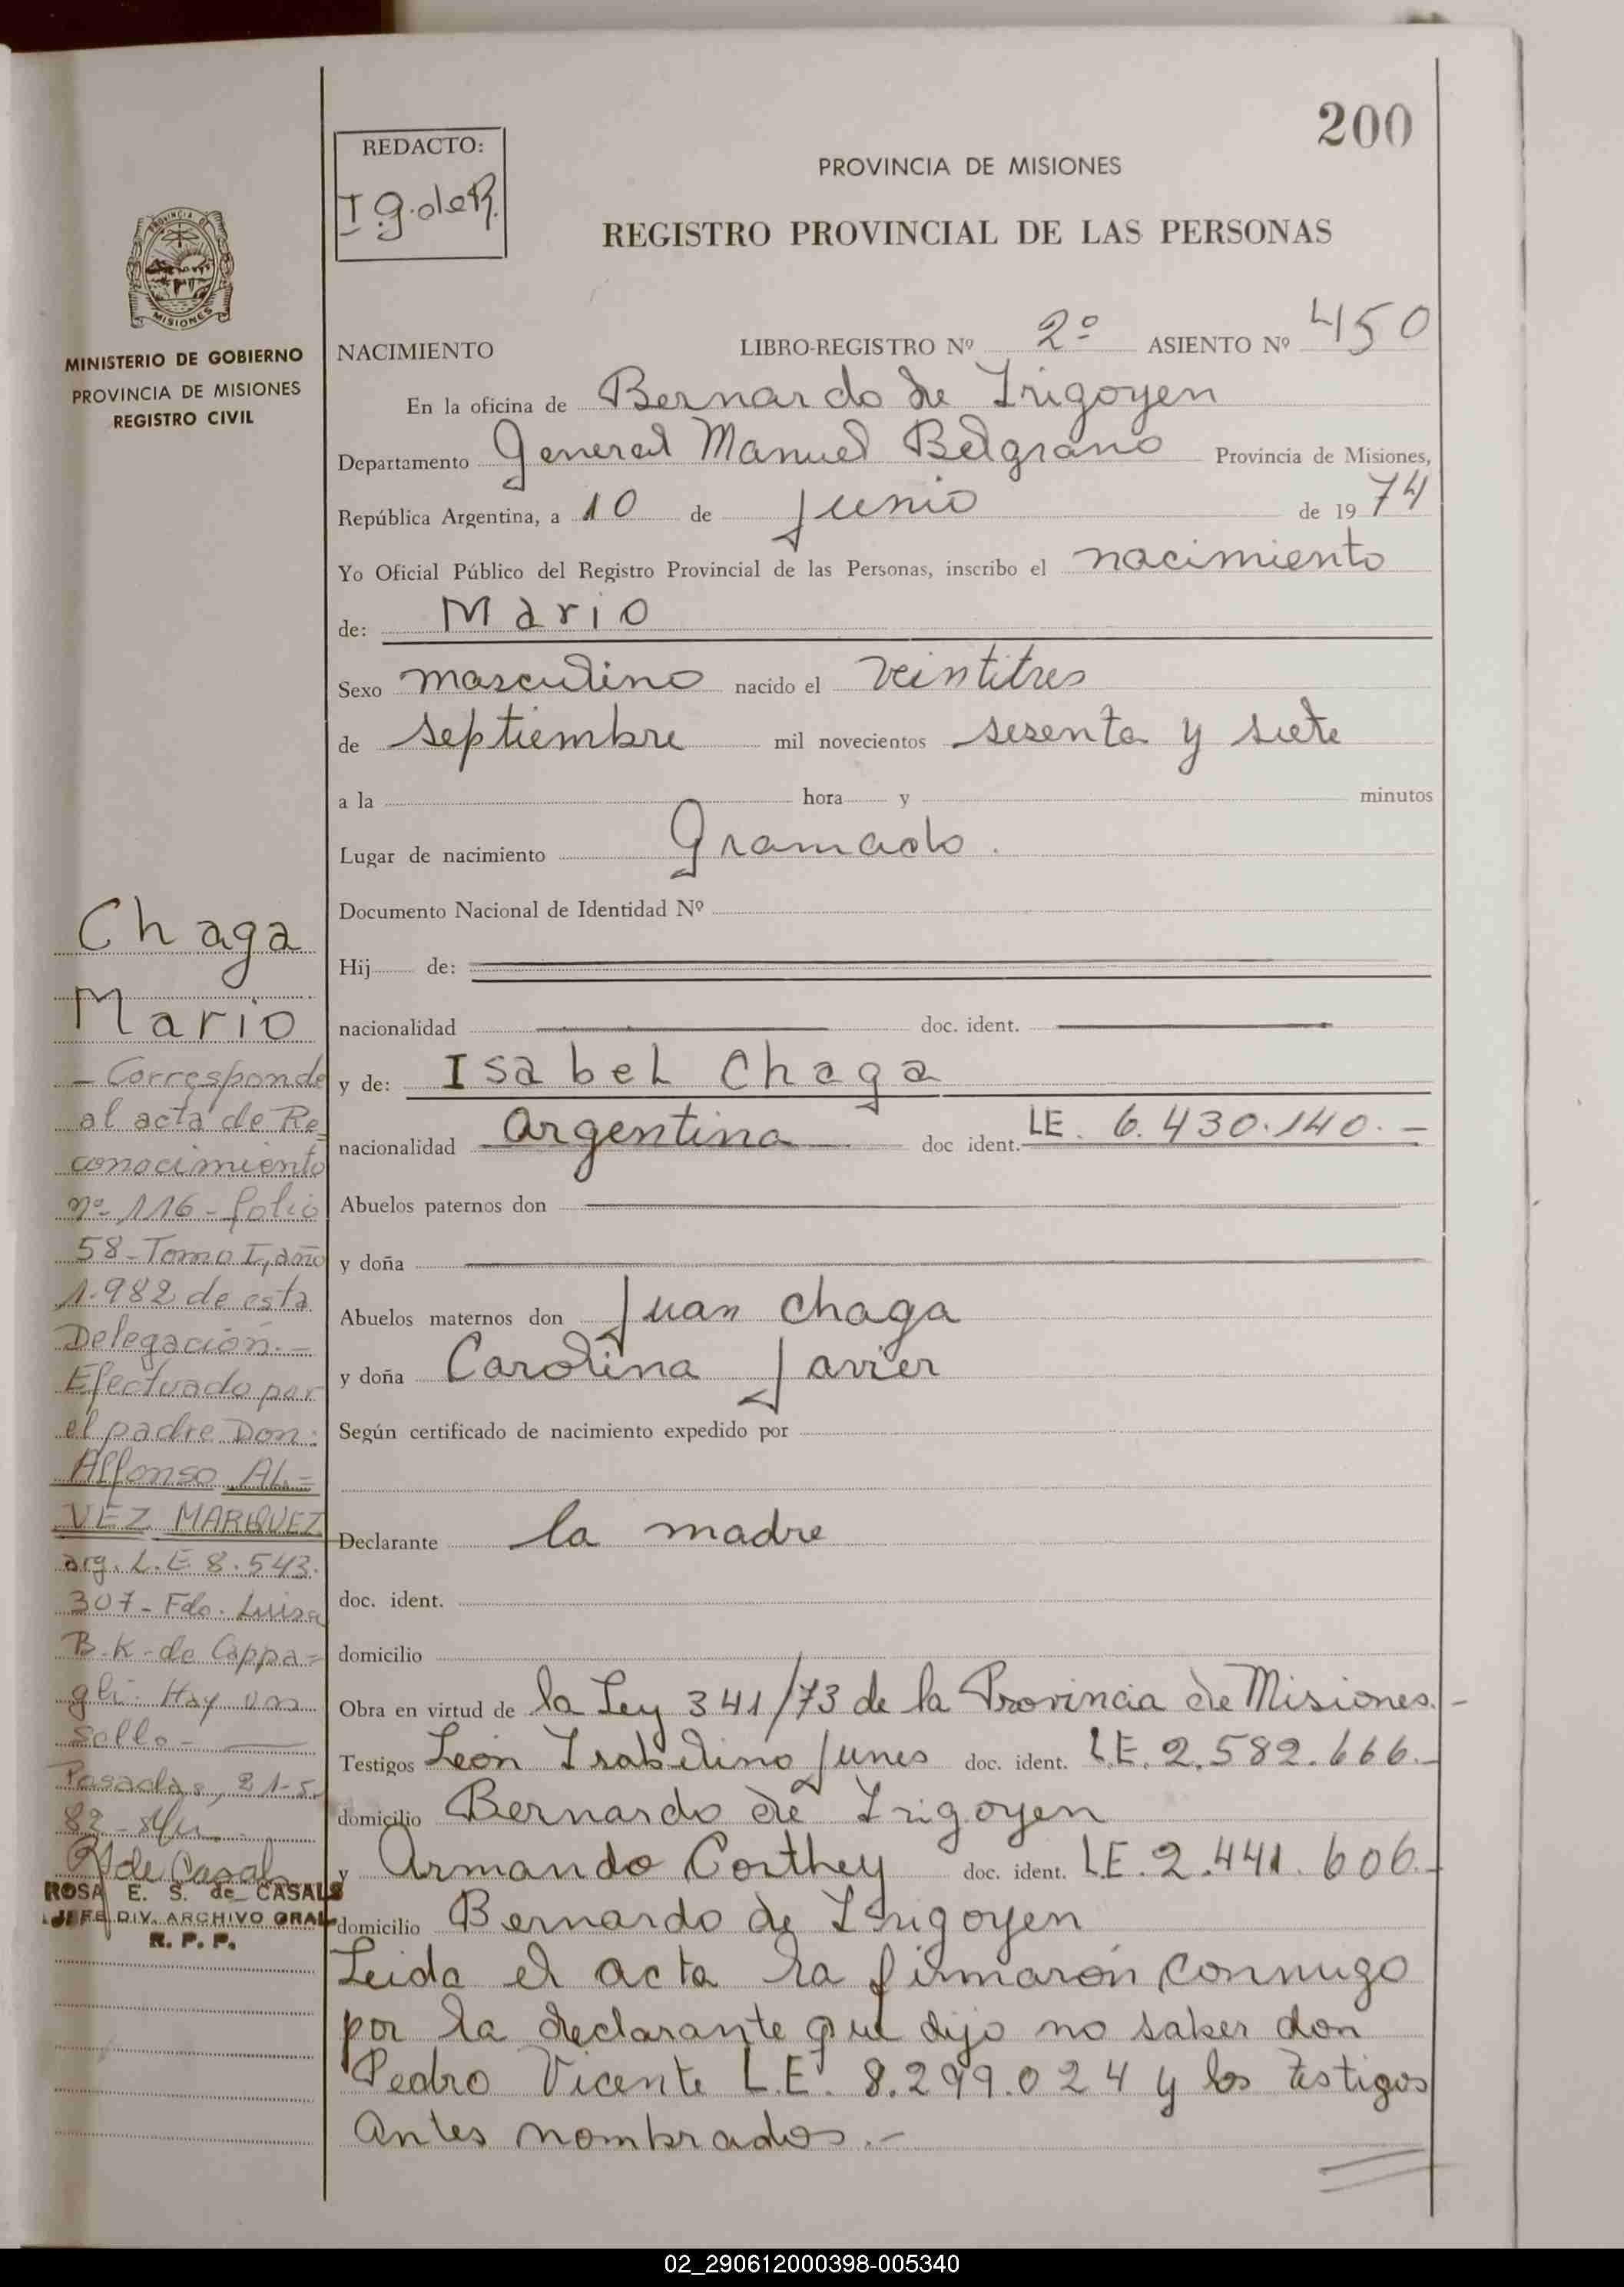 200
REDACTO:
I g. de R.
PROVINCIA DE MISIONES
REGISTRO PROVINCIAL DE LAS PERSONAS
PROVINCIA DE
MISIONES
MINISTERIO DE GOBIERNO
PROVINCIA DE MISIONES
REGISTRO CIVIL
NACIMIENTO LIBRO-REGISTRO Nº 2º ASIENTO Nº 450
En la oficina de Bernardo de Irigoyen
Departamento General Manuel Belgrano Provincia de Misiones,
República Argentina, a 10 de junio de 1974
Yo Oficial Público del Registro Provincial de las Personas, inscribo el nacimiento
de: Mario
Sexo masculino nacido el veintitres
de septiembre mil novecientos sesenta y siete
a la hora y minutos
Lugar de nacimiento Gramado.
Documento Nacional de Identidad Nº
Hij de:
nacionalidad doc. ident.
y de: Isabel Chaga
nacionalidad argentina doc ident. LE. 6.430.140.-
Abuelos paternos don
y doña
Abuelos maternos don Juan Chaga
y doña Carolina Javier
Según certificado de nacimiento expedido por
Declarante la madre
doc. ident.
domicilio
Obra en virtud de la Ley 341/73 de la Provincia de Misiones.-
Testigos León Isabelino Junes doc. ident. L.E. 2.582.666.-
domicilio Bernardo de Irigoyen
y Armando Corthey doc. ident. L.E. 2.441.606.-
domicilio Bernardo de Irigoyen
Leida el acta la firmarón conmigo
por la declarante que dijo no saber don
Pedro Vicente L.E. 8.299.024 y los testigos
antes nombrados.-
Chaga
Mario
- Corresponde
al acta de Re=
conocimiento
nº 116 - folio
58 - Tomo I, año
1.982 de esta
Delegación.-
Efectuado por
el padre Don:
Alfonso AL=
VEZ MARQUEZ
arg. L.E 8.543.
307 - Fdo. Luisa
B.K. de Cappa=
gli. Hay un
Sello -
Posadas, 21-5-
82
R de Casals
ROSA E. S. de CASALS
JEFE DIV. ARCHIVO GRAL
R. P. P.
02_290612000398-005340